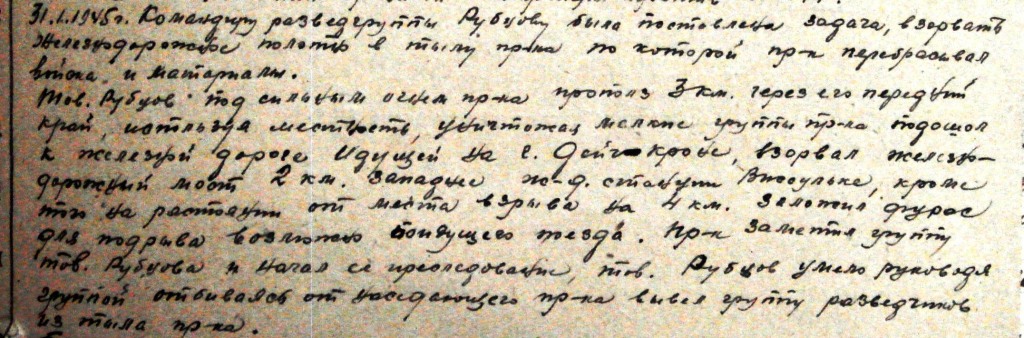 31.1.1945г. Командиру разведгруппы Рубцову была поставлена задача, взорвать
железнодорожное полотно в тылу пр-ка по которой пр-к перебрасывал
войска и материалы.
Тов. Рубцов под сильным огнем пр-ка прополз 3 км. через его передний
край, используя местность, уничтожая мелкие группы пр-ка подошол
к железной дороге идущей на г. Дейч-кроне, взорвал железно-
дорожный мост 2 км. западнее ж-д. станции кроме
того на растоянии от места взрыва на 4 км. заложил фугас
для подрыва возможно поезда. Пр-к заметил группу
тов. Рубцова и начал ее преследование, тов. Рубцов умело руководя
группой отбиваясь от наседающего пр-ка вывел группу разведчиков
из тыла пр-ка.